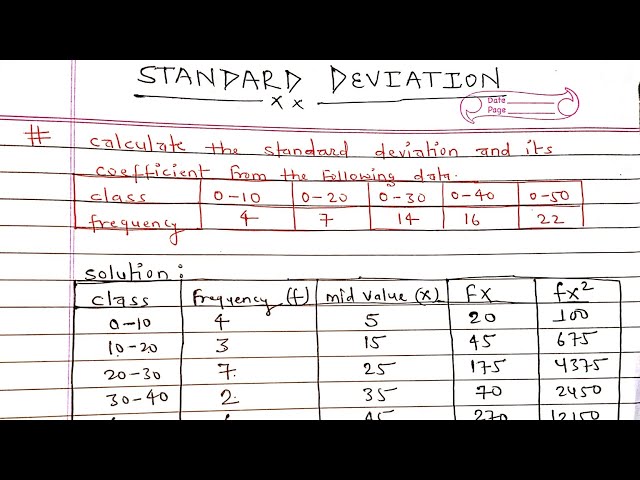 STANDARD DEVIATION
x x
Date
Page
# calculate the standard deviation and its
coefficient from the following data.
class 0-10 0-20 0-30 0-40 0-50
frequency 4 7 14 16 22
solution:
class frequency (f) mid value (x) fx fx²
0-10 4 5 20 100
10-20 3 15 45 675
20-30 7 25 175 4375
30-40 2 35 70 2450
45 270 12150